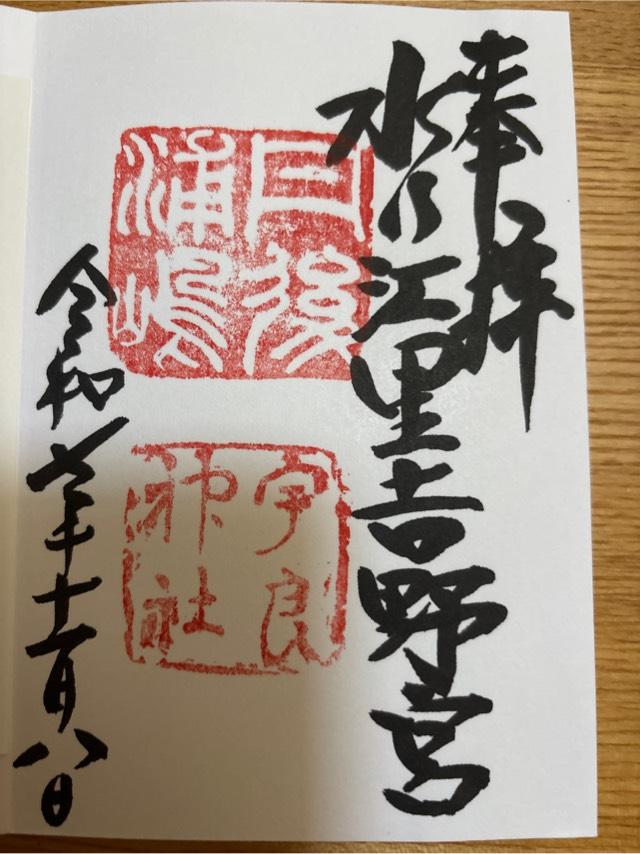 奉拝
水乃江里吉野宮
丹後
浦嶋
宇良
神社
令和七年十一月八日